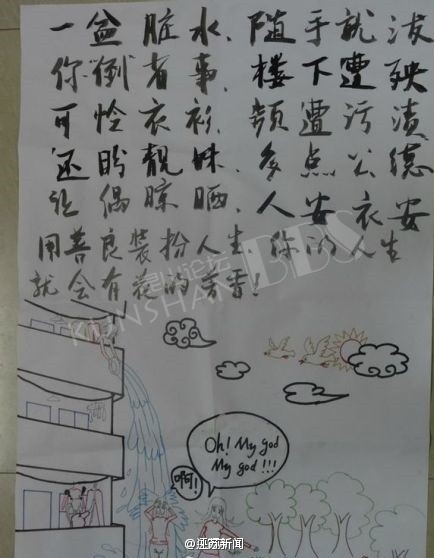 一盆脏水，随手就泼
你倒省事，楼下遭殃
可怜衣衫，频遭污渍
还盼靓妹，多点公德
让偶晾晒，人安衣安
用善良装扮人生，你的人生
就会有花的芳香！
昆山论坛
KUNSHAN BBS
Oh! My god
My god!!!
啊!
@江苏新闻